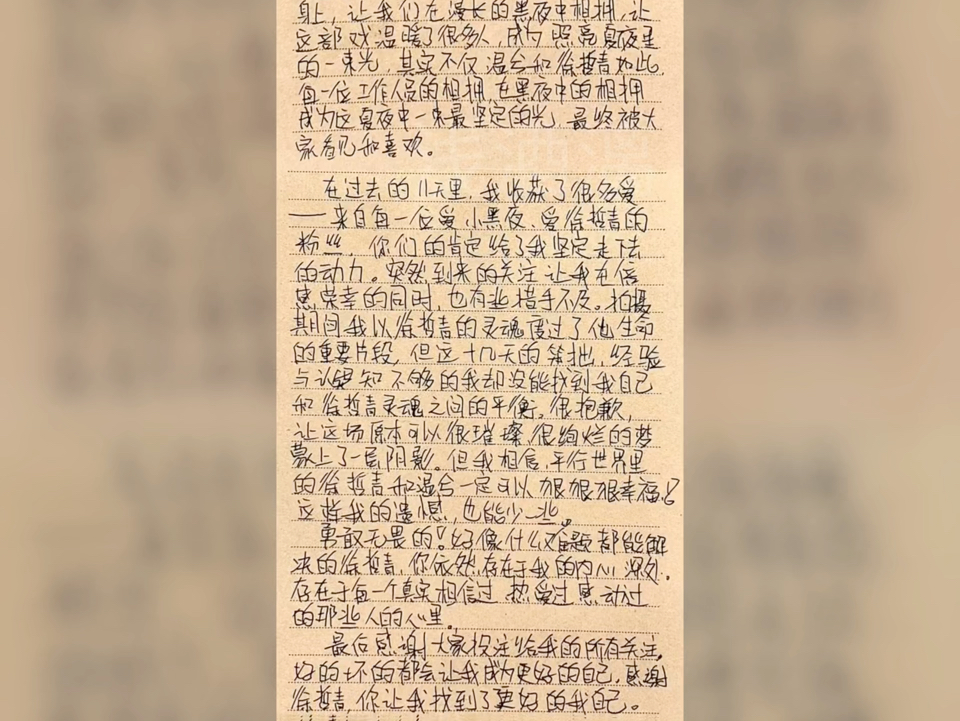 身上，让我们在漫长的黑夜中相拥，让
这部戏温暖了很多人，成为照亮夏夜里
的一束光，其实不仅温兮和徐哲青如此，
每一位工作人员的相拥，在黑夜中的相拥
成为这夏夜中一束最坚定的光，最终被大
家看见和喜欢。
在过去的11天里，我收获了很多爱
——来自每一位爱小黑夜、爱徐哲青的
粉丝，你们的肯定给了我坚定走下去
的动力。突然到来的关注让我充信
感荣幸的同时，也有些措手不及。拍摄
期间我以徐哲青的灵魂度过了他生命
的重要片段，但这十几天的笨拙，经验
与认知不够的我却没能找到我自己
和徐哲青灵魂之间的平衡。很抱歉，
让这场原本可以很璀璨、很绚烂的梦
蒙上了一层阴影。但我相信，平行世界里
的徐哲青和温兮一定可以狠狠狠幸福！
这样我的遗憾，也能少一些。
勇敢无畏的！好像什么难题都能解
决的徐哲青，你依然存在于我的内心深处，
存在于每一个真实相信过、热爱过、感动过
的那些人的心里。
最后感谢大家投注给我的所有关注，
好的坏的都会让我成为更好的自己，感谢
徐哲青，你让我找到了更好的我自己。